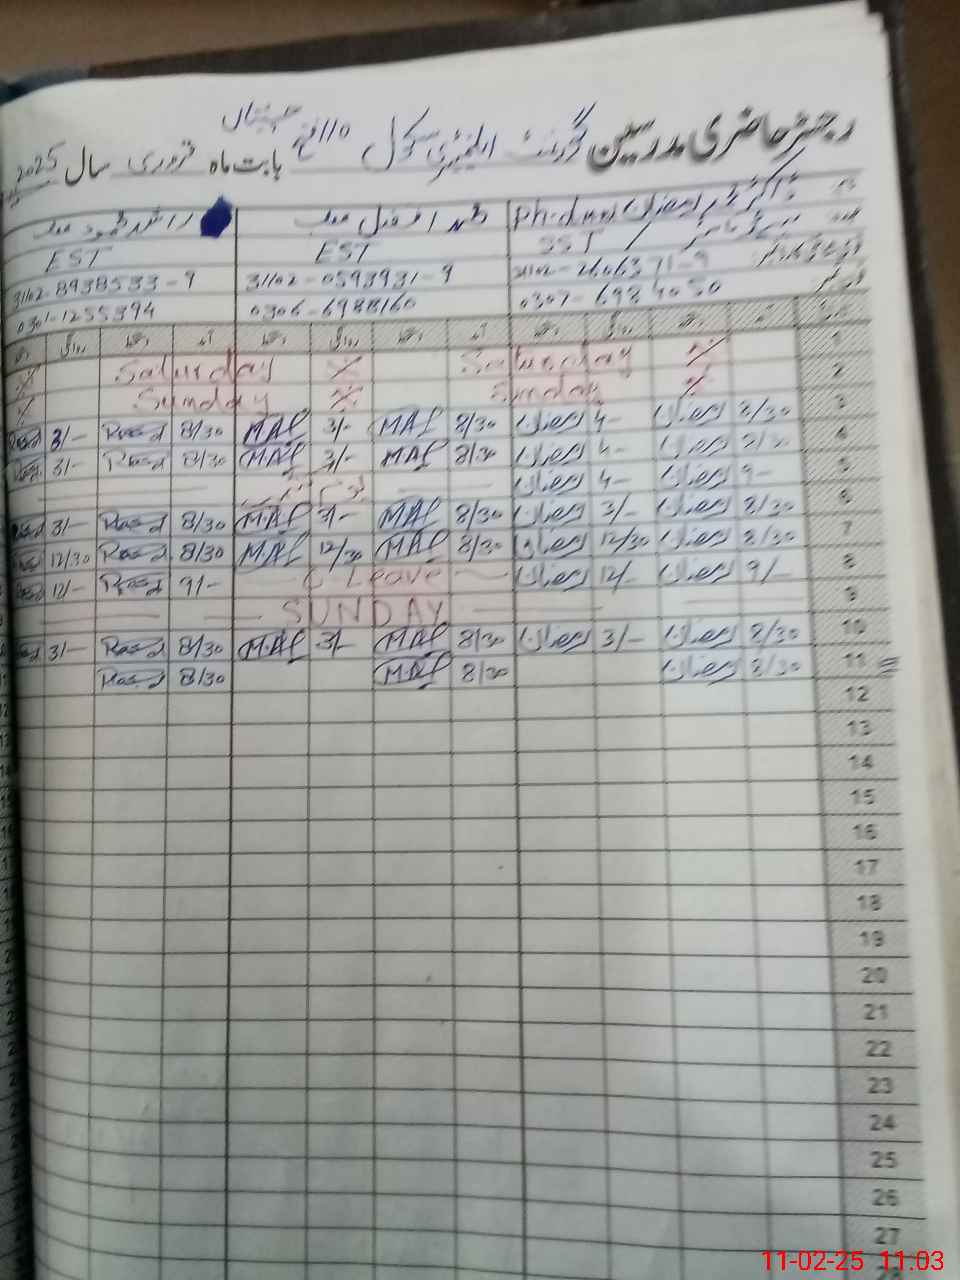 رجسٹر حاضری مدرسین گورنمنٹ ایلیمنٹری سکول 110
بابت ماہ فروری سال 2025
ڈاکٹر محمد رمضان Ph.d محمد افضل صاحب راشد محمود صاحب
SST EST EST
31102-0593931-9 31102-8938533-9
0306-6988160 0301-1255394
1 آمد دستخط روانگی دستخط آمد دستخط روانگی دستخط آمد دستخط روانگی
Saturday Saturday
2
Sunday Sunday
3 8/30 رمضان 4- رمضان 8/30 MAF 3/- MAF 8/30 Rasd 3/- Rasd
4 رمضان 4- رمضان 8/30 MAF 3/- MAF 8/30 Rasd 3/- Rasd
5 9- رمضان 4- رمضان
6 8/30 رمضان 3/- رمضان 8/30 MAF 3/- MAF 8/30 Rasd 3/- Rasd
7 8/30 رمضان 12/30 رمضان 8/30 MAF 12/30 MAF 8/30 Rasd 12/30 Rasd
8 9/- رمضان 12/- رمضان C Leave 9/- Rasd 12/- Rasd
9 SUNDAY
10 8/30 رمضان 3/- رمضان 8/30 MAF 3/- MAF 8/30 Rasd 3/- Rasd
11 8/30 رمضان 8/30 MAF 8/30 Rasd
12
13
14
15
16
17
18
19
20
21
22
23
24
25
26
27
11-02-25 11.03